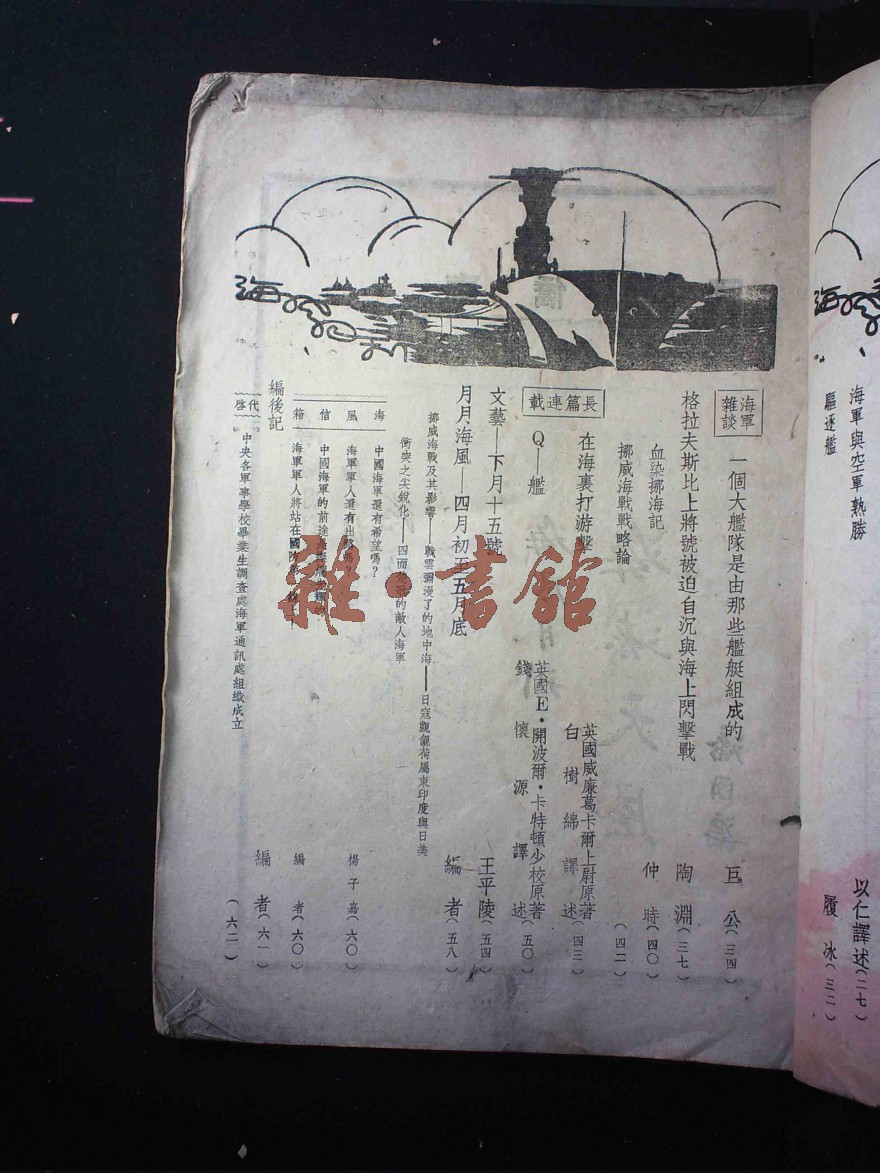 海軍與空軍熟勝 以仁譯述(二七)
驅逐艦 履冰(三二)
海軍雜談
一個大艦隊是由那些艦艇組成的 巨公(三四)
格拉夫斯比上將號被迫自沉與海上閃擊戰 陶淵(三七)
血染挪海記 仲時(四〇)
挪威海戰戰略論 (四二)
長篇連載
在海裏打游擊 英國威廉葛卡爾上尉原著 白樹綿譯述(四三)
Q—艦 英國E·開波爾·卡特頓少校原著 錢懷源譯述(五〇)
文藝—下月十五號 王平陵(五四)
月月海風—四月初至五月底 編者(五八)
挪威海戰及其影響——戰雲彌漫了的地中海——日寇覬覦荷屬東印度與日美
衝突之尖銳化——四面楚歌的敵人海軍
海風信箱
中國海軍還有希望嗎?
海軍軍人還有出路嗎? 楊子嘉(六〇)
中國海軍的前途
海軍軍人將站在國防 編者(六〇)
編後記 編者(六一)
代啓
中央各軍事學校畢業生調查處海軍通訊處組織成立 (六二)
雜·書館